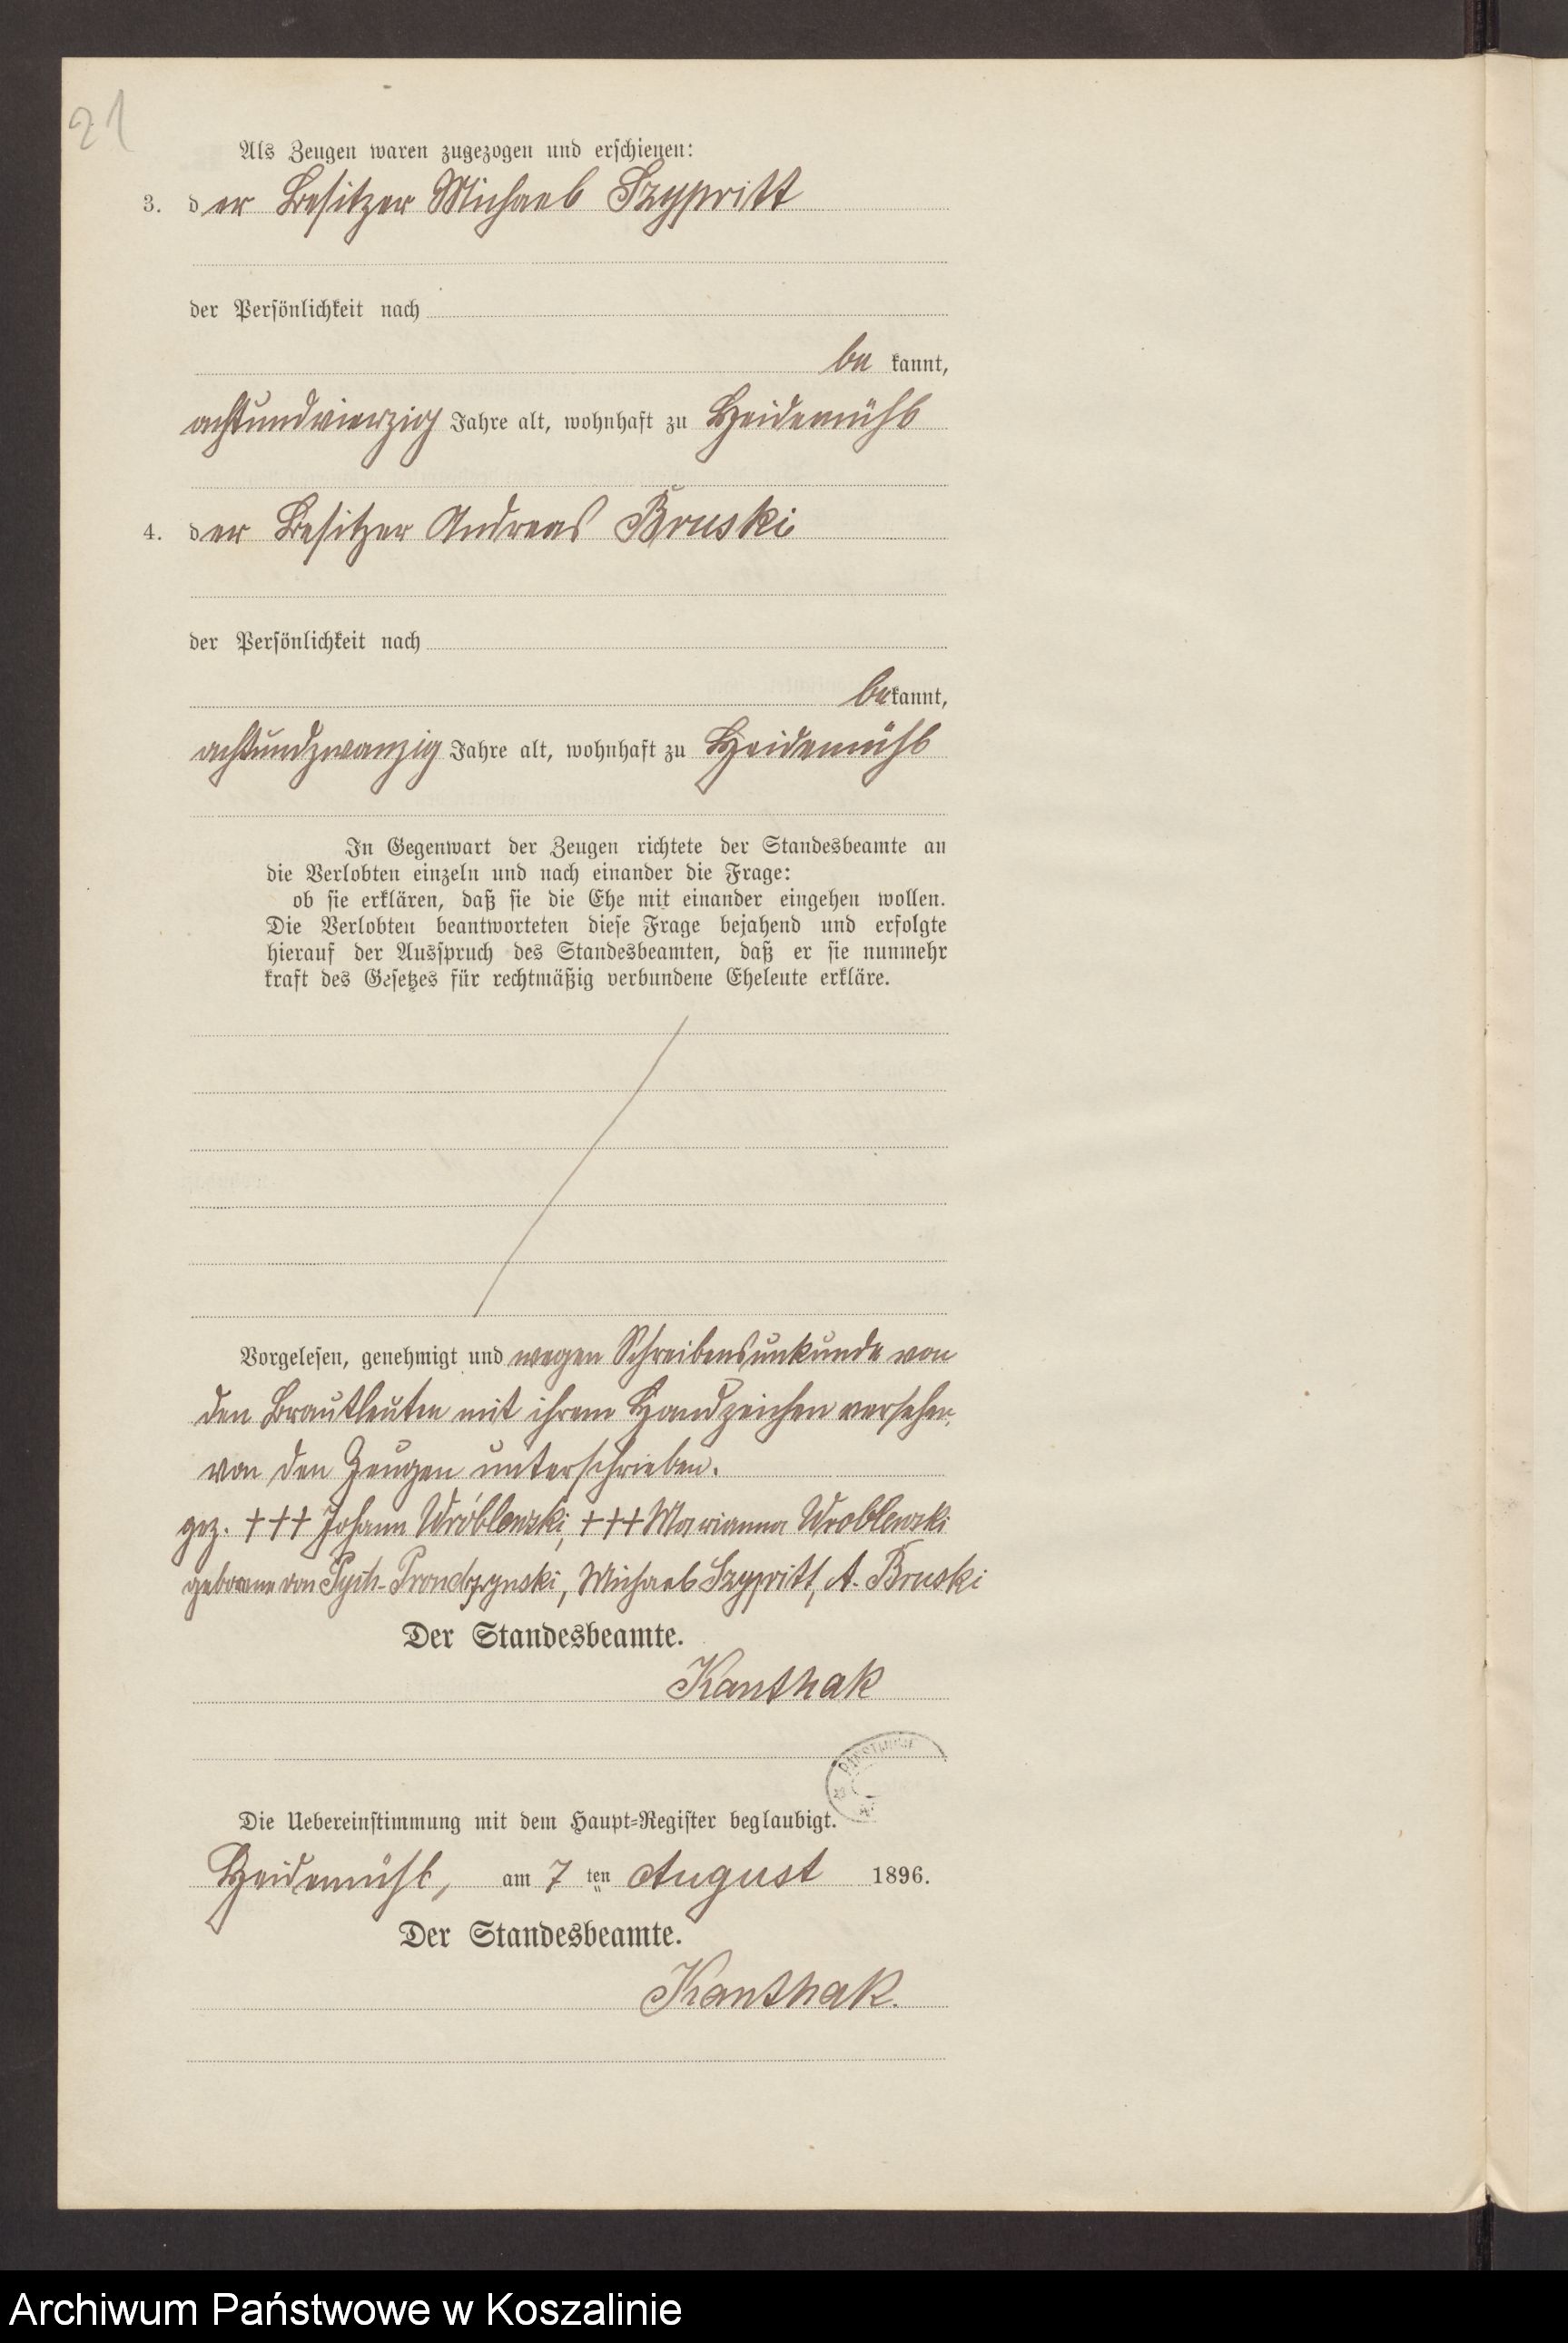 21
Als Zeugen waren zugezogen und erschienen:
3. der Besitzer Michael Szypritt
der Persönlichkeit nach
be kannt,
achtundvierzig Jahre alt, wohnhaft zu Heidemühl
4. der Besitzer Andreas Bruski
der Persönlichkeit nach
bekannt,
achtundzwanzig Jahre alt, wohnhaft zu Heidemühl
In Gegenwart der Zeugen richtete der Standesbeamte an
die Verlobten einzeln und nach einander die Frage:
ob sie erklären, daß sie die Ehe mit einander eingehen wollen.
Die Verlobten beantworteten diese Frage bejahend und erfolgte
hierauf der Ausspruch des Standesbeamten, daß er sie nunmehr
kraft des Gesetzes für rechtmäßig verbundene Eheleute erkläre.
Vorgelesen, genehmigt und wegen Schreibensunkunde von
den Brautleuten mit ihrem Handzeichen versehen,
von den Zeugen unterschrieben.
gez. +++ Johann Wróblewski, +++ Marianna Wroblewski
geborene von Pych-Prondzynski, Michael Szypritt, A. Bruski
Der Standesbeamte.
Kanthak
Die Uebereinstimmung mit dem Haupt-Register beglaubigt.
Heidemühl, am 7 ten August 1896.
Der Standesbeamte.
Kanthak.
Archiwum Państwowe w Koszalinie